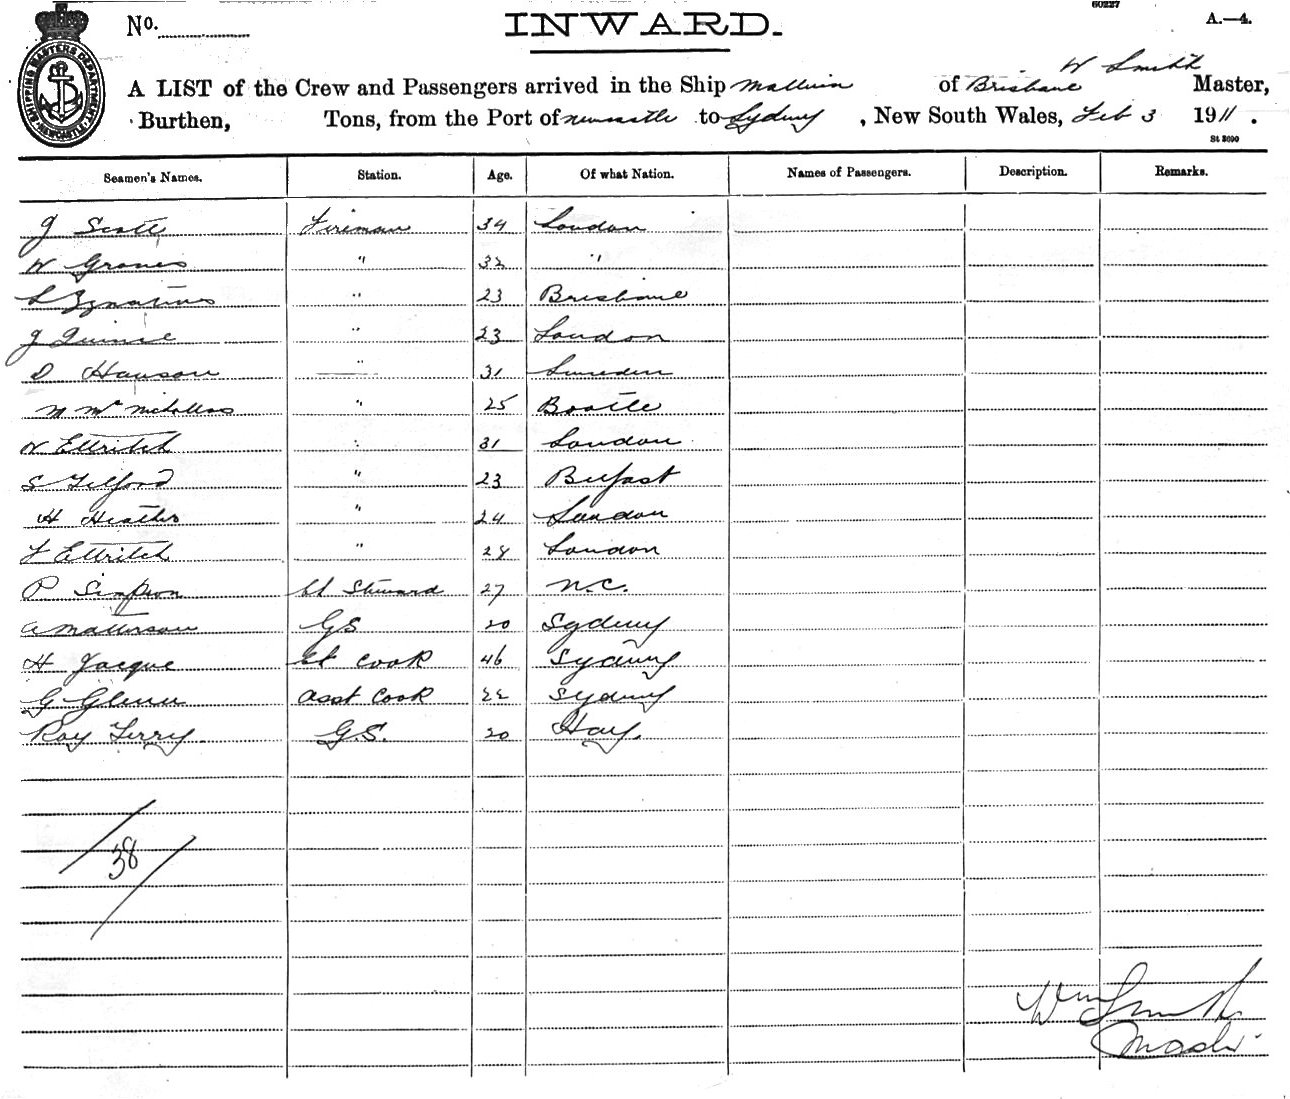 60227
No.
INWARD.
A.—4.
SHIPPING MASTERS DEPARTMENT NEWCASTLE
W Smith
A LIST of the Crew and Passengers arrived in the Ship of Brisbane Master,
Burthen, Tons, from the Port of Newcastle to Sydney, New South Wales, Feb 3 1911.
St 3690
Seamen's Names. Station. Age. Of what Nation. Names of Passengers. Description. Remarks.
J Scott Fireman 34 London
W Groves " 32 "
L Ignatius " 23 Brisbane
J " 23 London
D Hanson " 31 Sweden
M Mc Nicholas " 25 Bootle
W Ettritch " 31 London
S Telford " 23 Belfast
H " 24 London
F Ettritch " 28 London
P Simpson Steward 27 N.C.
A Matterson GS 20 Sydney
H Jacque Cook 46 Sydney
G Glenn Asst Cook 22 Sydney
Roy Terry. G.S. 20 Hay.
38
Wm Smith
Master